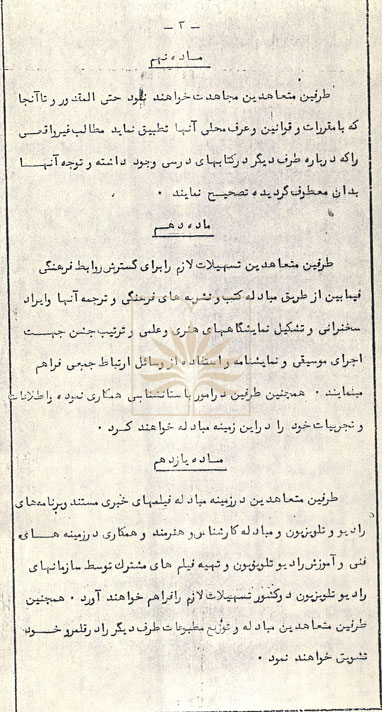 - ۳ -
ماده نهم
طرفین متعاهدین مجاهدت خواهند نمود حتی المقدور و تا آنجا
که با مقررات و قوانین و عرف محلی آنها تطبیق نماید مطالب غیر واقعی
را که درباره طرف دیگر در کتابهای درسی وجود داشته و توجه آنها
بدان معطوف گردیده تصحیح نمایند .
ماده دهم
طرفین متعاهدین تسهیلات لازم را برای گسترش روابط فرهنگی
فیمابین از طریق مبادله کتب و نشریه های فرهنگی و ترجمه آنها و ایراد
سخنرانی و تشکیل نمایشگاههای هنری و علمی و ترتیب جشن جهت
اجرای موسیقی و نمایشنامه و استفاده از وسائل ارتباط جمعی فراهم
مینمایند . همچنین طرفین در امور باستانشناسی همکاری نموده و اطلاعات
و تجربیات خود را در این زمینه مبادله خواهند کرد .
ماده یازدهم
طرفین متعاهدین در زمینه مبادله فیلمهای خبری مستند و برنامه های
رادیو و تلویزیون و مبادله کارشناس و هنرمند و همکاری در زمینه های
فنی و آموزش رادیو تلویزیون و تهیه فیلم های مشترک توسط سازمانهای
رادیو تلویزیون دو کشور تسهیلات لازم را فراهم خواهند آورد . همچنین
طرفین متعاهدین مبادله و توزیع مطبوعات طرف دیگر را در قلمرو خود
تشویق خواهند نمود .